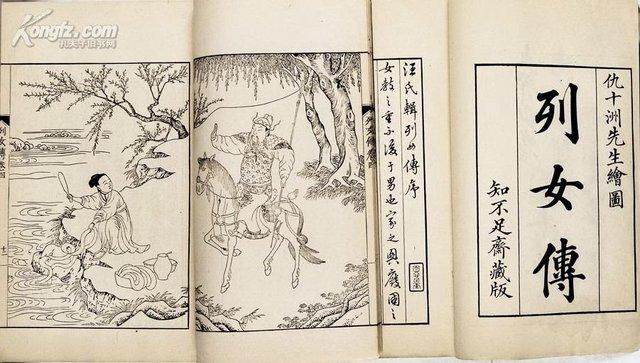 Kongfz.com
孔夫子旧书网
仇十洲先生繪圖
列女傳
知不足齋藏版
汪氏輯列女傳序
女教之重不後于男也家之興廢國之
列女傳卷四